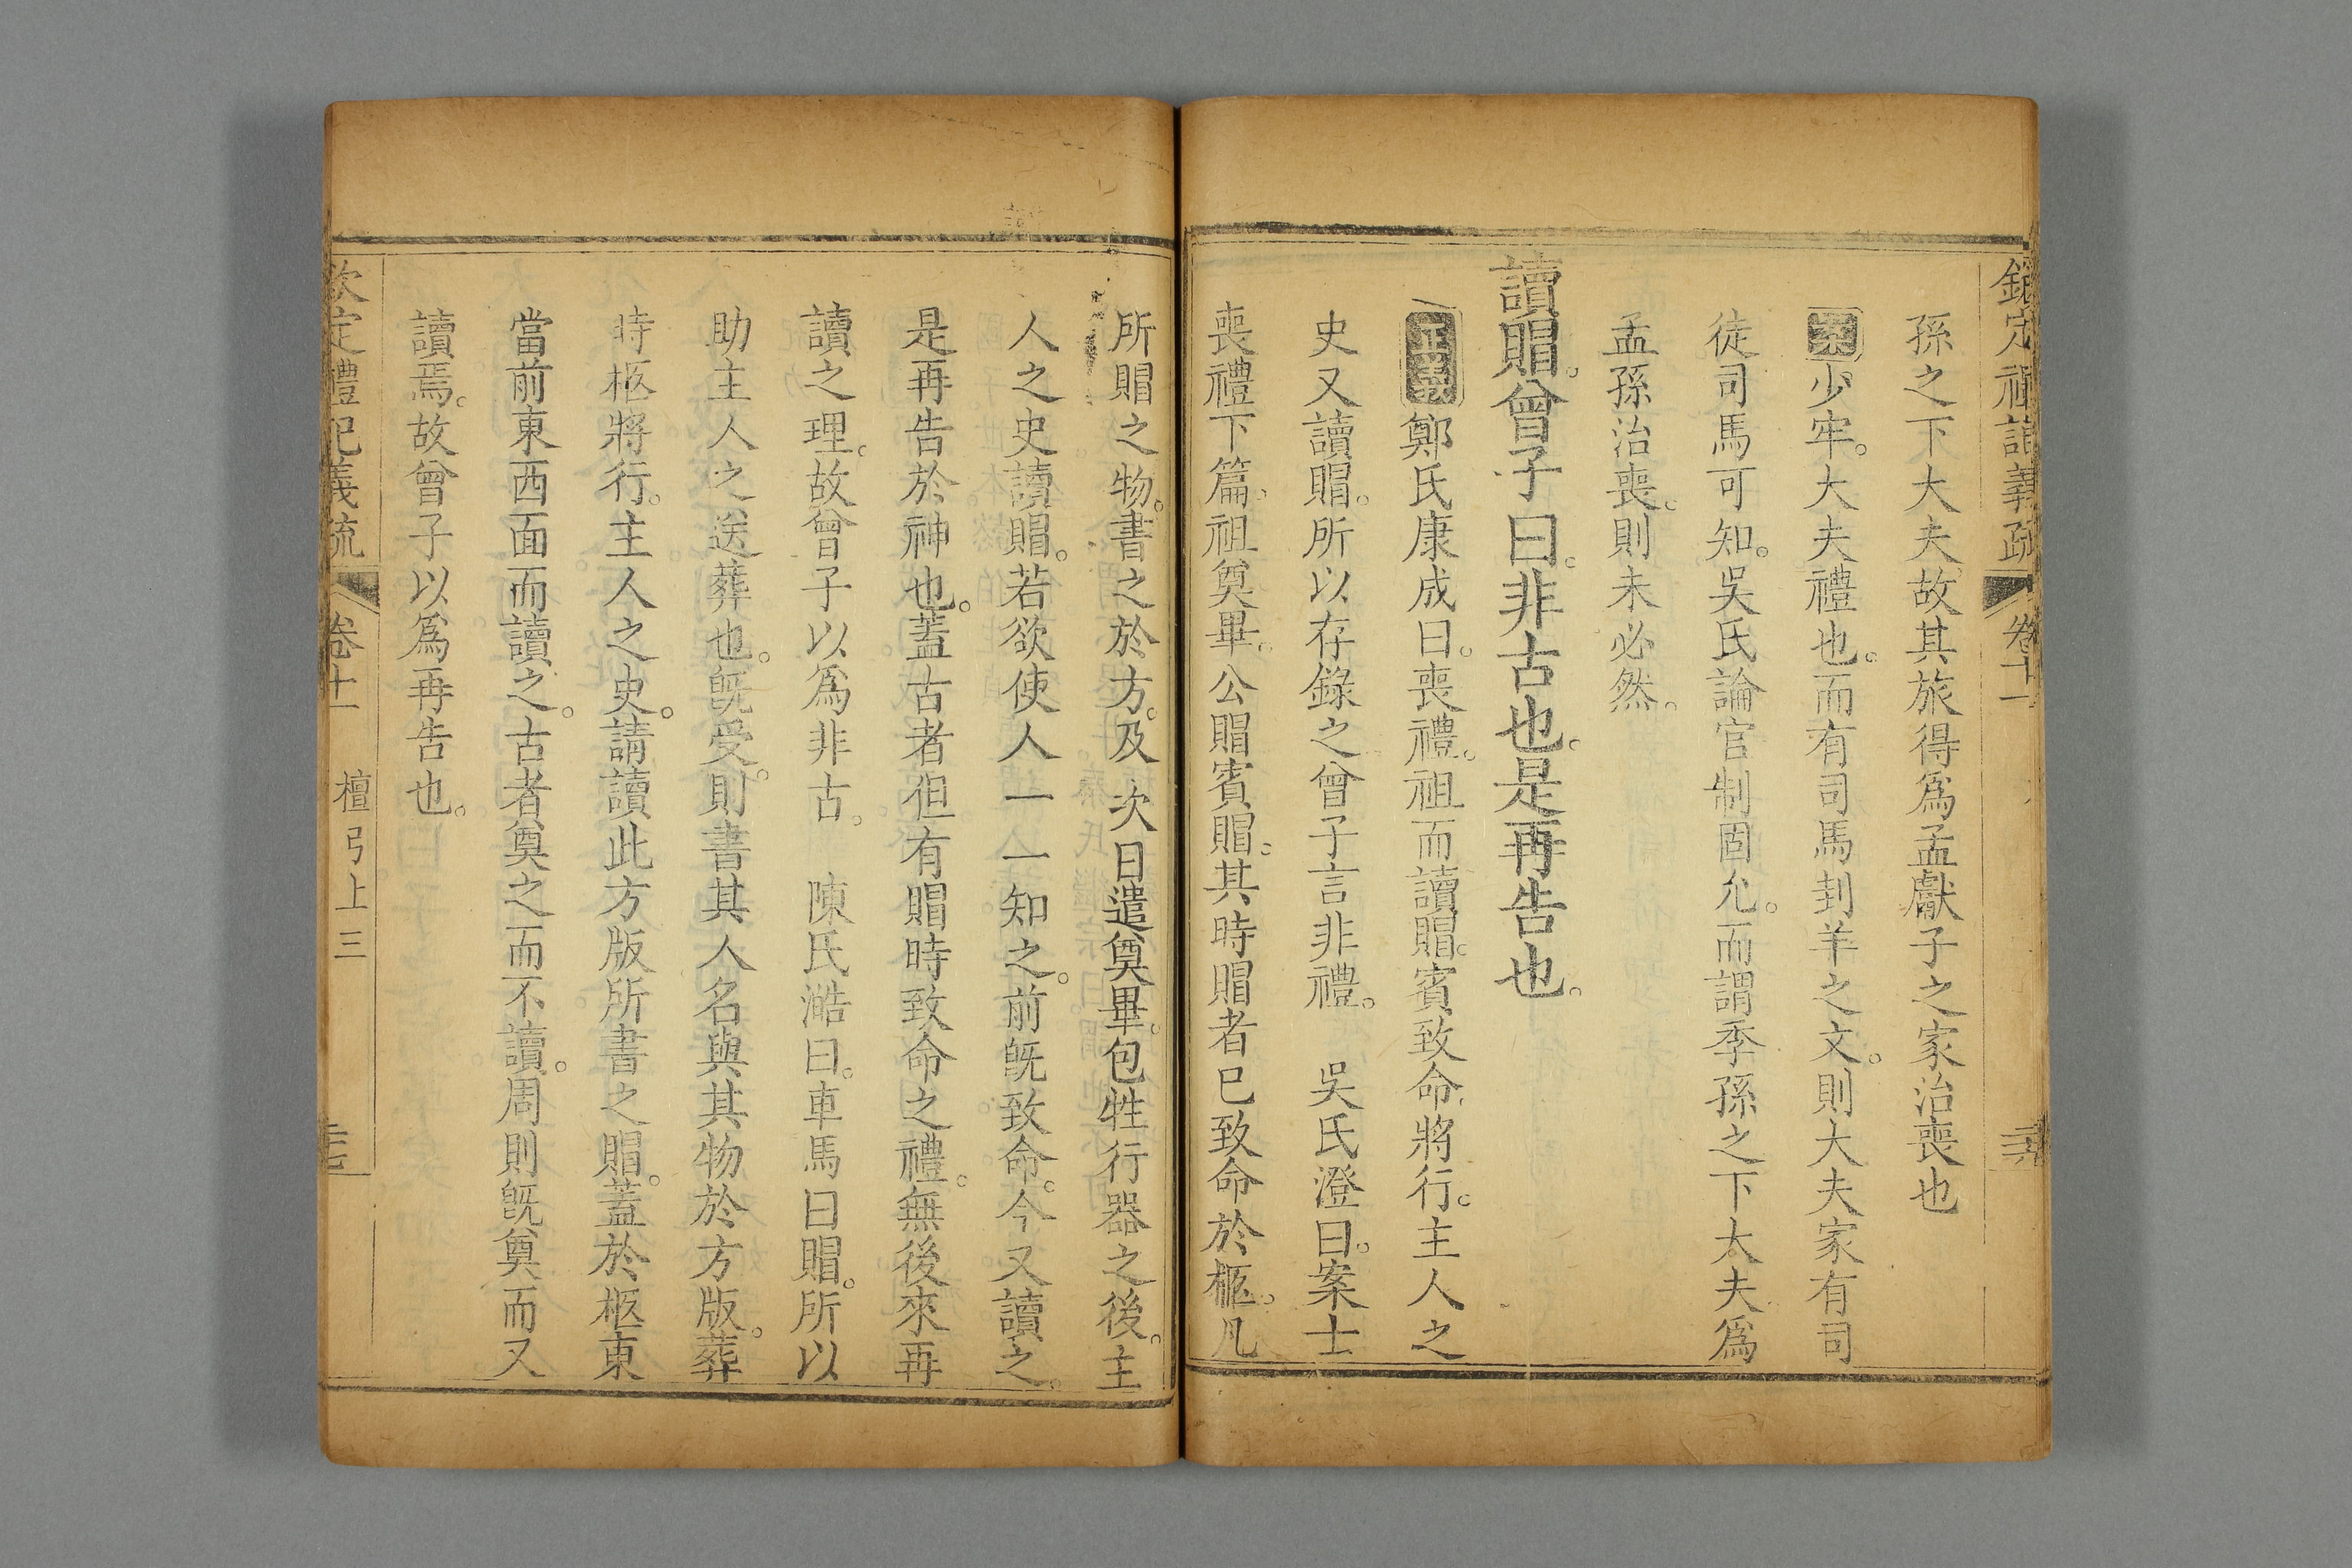 欽定禮記義疏 卷十一
孫之下大夫故其旅得爲孟獻子之家治喪也
案少牢。大夫禮也。而有司馬刲羊之文。則大夫家有司
徒司馬可知。吳氏論官制固允。而謂季孫之下大夫爲
孟孫治喪。則未必然。
讀賵。曾子曰。非古也。是再告也。
正義鄭氏康成曰。喪禮。祖而讀賵。賓致命。將行。主人之
史又讀賵。所以存錄之曾子言非禮。 吳氏澄曰。案士
喪禮下篇。祖奠畢。公賵賓賵。其時賵者巳致命於柩。凡
所賵之物。書之於方。及次日遣奠畢。包牲行器之後。主
人之史讀賵。若欲使人一一知之。前旣致命。今又讀之。
是再告於神也。蓋古者但有賵時致命之禮。無後來再
讀之理。故曾子以爲非古。 陳氏澔曰。車馬曰賵。所以
助主人之送葬也。旣受。則書其人名與其物於方版。葬
時柩將行。主人之史。請讀此方版所書之賵。蓋於柩東
當前東西面而讀之。古者奠之而不讀。周則旣奠而又
讀焉。故曾子以爲再告也。
欽定禮記義疏 卷十一 檀弓上三